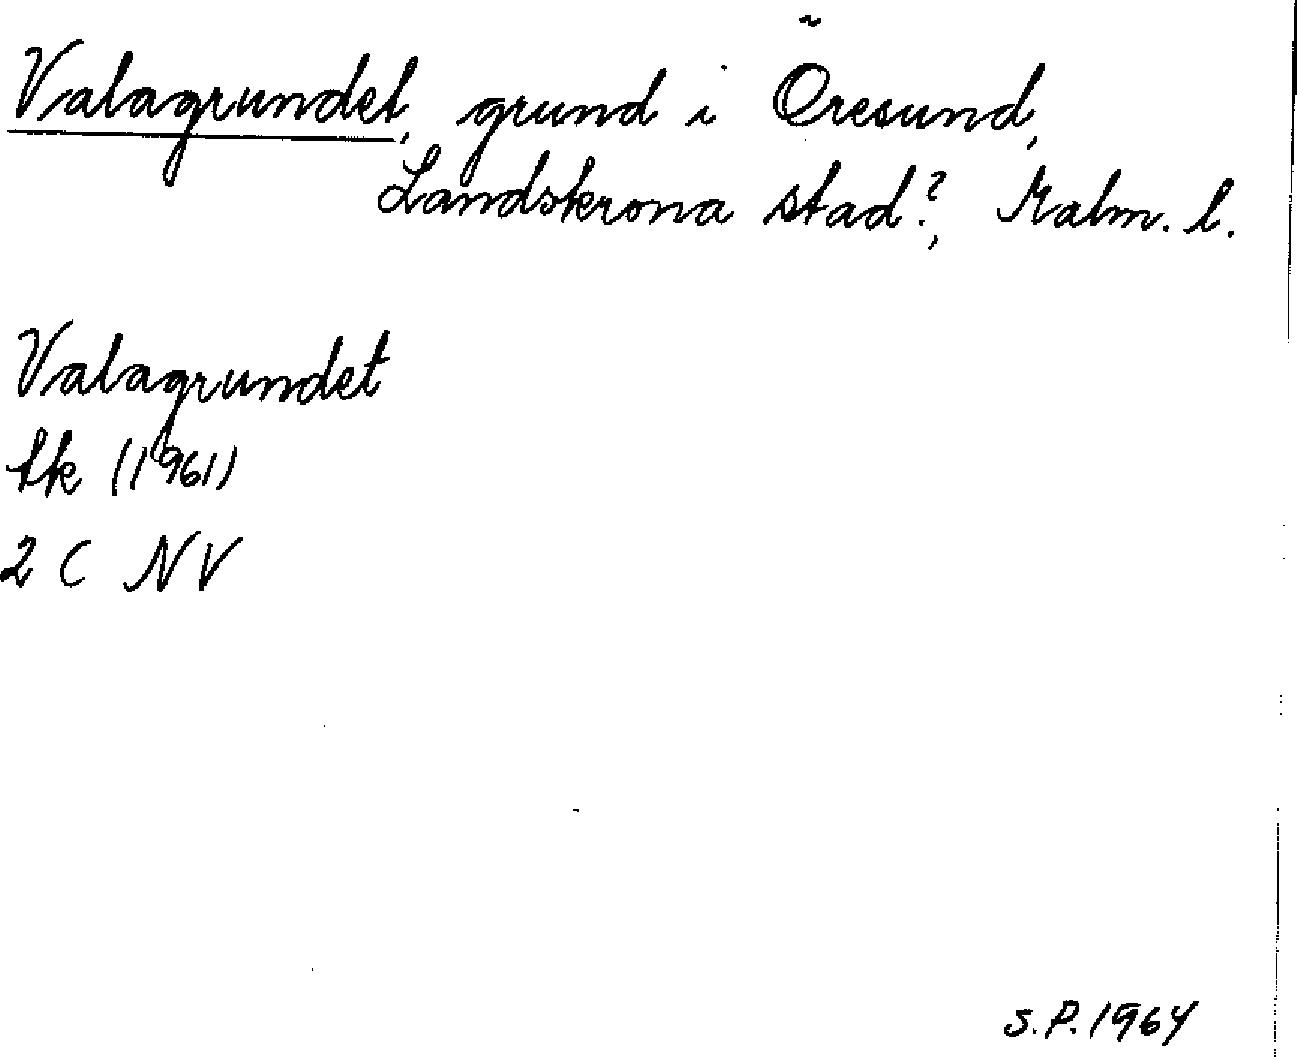 Valagrundet, grund i Öresund,
Landskrona stad?, Malm. l.
Valagrundet
tk (1961)
2 C NV
S.P. 1964